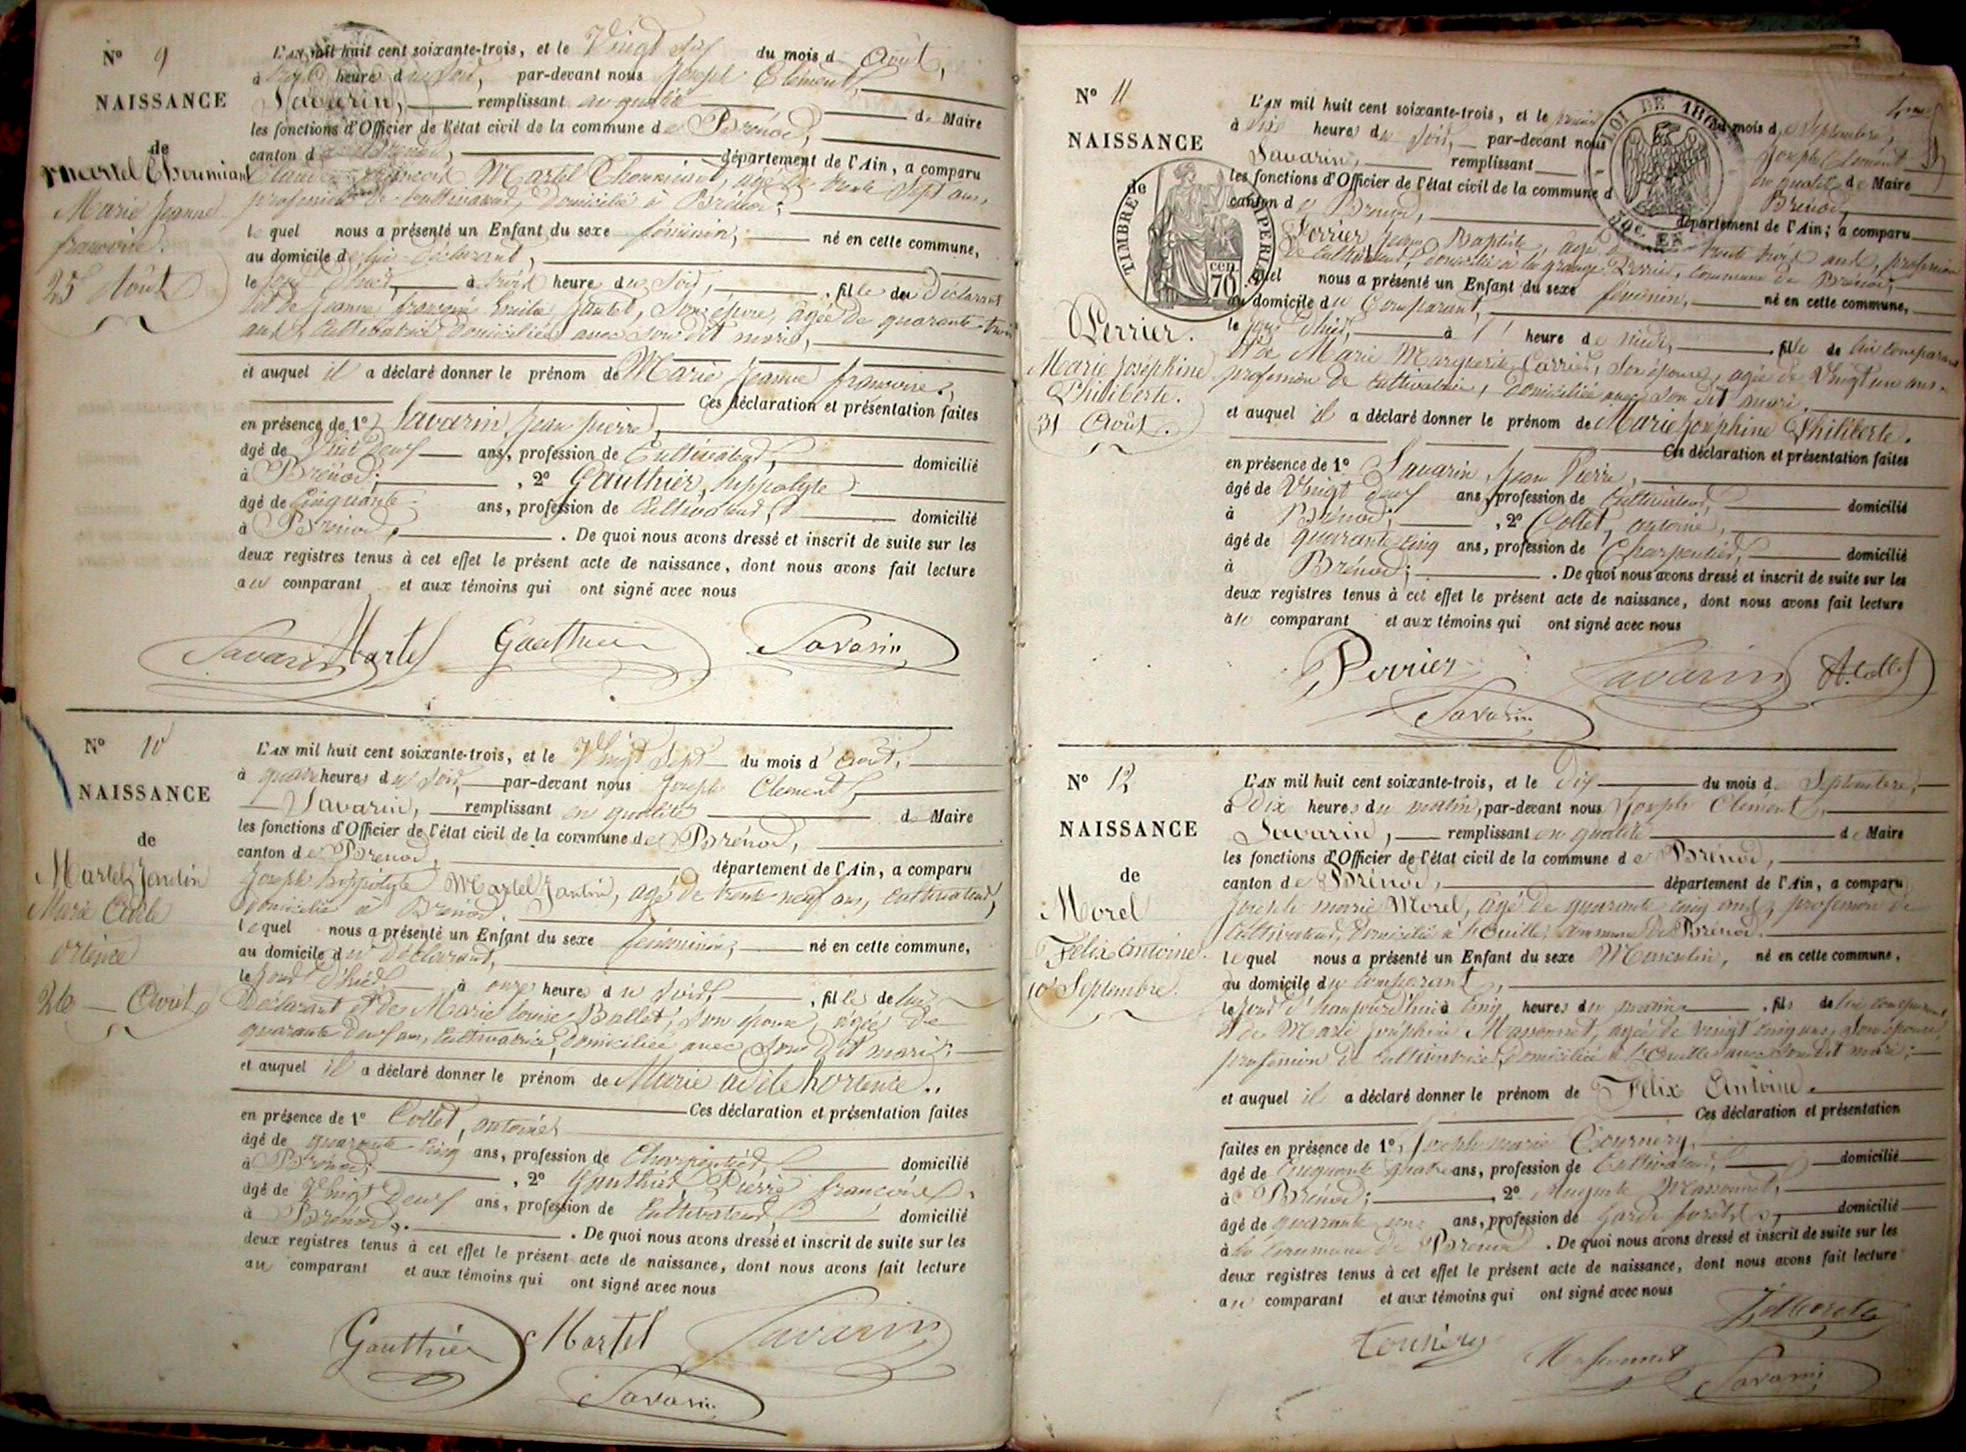 N° 9
NAISSANCE
de
Martel Choumiant
Marie Jeanne
françoise.
25 Août
L'AN mil huit cent soixante-trois, et le Vingt six du mois d Août,
à heure du soir, par-devant nous Joseph Clément
Savarin, remplissant en qualité de Maire
les fonctions d'Officier de l'état civil de la commune de Brénod,
canton de Brénod, département de l'Ain, a comparu
Claude françois Martel Choumiant, âgé de trente sept ans,
profession de cultivateur, domicilié à Brénod;
lequel nous a présenté un Enfant du sexe féminin, né en cette commune,
au domicile de lui déclarant,
le jour d'hier, à trois heure du soir, , fille du Déclarant
et de Jeanne françoise Emilie Jantet, son épouse, âgée de quarante-trois
ans, cultivatrice domiciliée avec son dit mari,
et auquel il a déclaré donner le prénom de Marie Jeanne françoise,
Ces déclaration et présentation faites
en présence de 1° Savarin, Jean pierre,
âgé de Vingt deux ans, profession de Cultivateur, domicilié
à Brénod; , 2° Gauthier, hippolyte
âgé de Cinquante ans, profession de Cultivateur, domicilié
à Brénod, . De quoi nous avons dressé et inscrit de suite sur les
deux registres tenus à cet effet le présent acte de naissance, dont nous avons fait lecture
au comparant et aux témoins qui ont signé avec nous
Savarin Martel Gauthier Savarin
N° 10
NAISSANCE
de
Martel Jantin
Marie Adèle
ortence
26 Août
L'AN mil huit cent soixante-trois, et le Vingt Sept du mois d'Août,
à quatre heures du soir, par-devant nous Joseph Clement
Savarin, remplissant en qualité de Maire
les fonctions d'Officier de l'état civil de la commune de Brénod,
canton de Brénod, département de l'Ain, a comparu
Joseph hippolyte Martel Jantin, âgé de trente-neuf ans, cultivateur,
domicilié à Brénod,
lequel nous a présenté un Enfant du sexe féminin, né en cette commune,
au domicile du déclarant,
le jour d'hier, à onze heures du soir, , fille de lui
Déclarant et de Marie louise Ballet, son épouse, âgée de
quarante deux ans, cultivatrice, domiciliée avec son dit mari;
et auquel il a déclaré donner le prénom de Marie adèle hortence.
Ces déclaration et présentation faites
en présence de 1° Collet, antoine,
âgé de quarante-cinq ans, profession de Charpentier, domicilié
à Brénod; , 2° Gauthier Pierre françois,
âgé de Vingt Deux ans, profession de Cultivateur, domicilié
à Brénod, . De quoi nous avons dressé et inscrit de suite sur les
deux registres tenus à cet effet le présent acte de naissance, dont nous avons fait lecture
au comparant et aux témoins qui ont signé avec nous
Gauthier Martel Savarin
Savarin
N° 11
NAISSANCE
de
TIMBRE IMPERIAL
70 cen
LOI DE
Perrier.
Marie Joséphine
Philiberte.
31 Août.
L'AN mil huit cent soixante-trois, et le du mois de Septembre,
à dix heures du soir, par-devant nous Joseph Clément
Savarin, remplissant en qualité de Maire
les fonctions d'Officier de l'état civil de la commune d Brénod,
canton de Brénod, département de l'Ain; a comparu
Perrier Jean Baptiste, âgé de trente trois ans, profession
de cultivateur, domicilié à la grange Perrier, commune de Brénod;
lequel nous a présenté un Enfant du sexe féminin, né en cette commune,
au domicile du Comparant,
le jour d'hier, à 11 heure de midi, , fille de lui comparant
et de Marie Marguerite Carrier, son épouse, âgée de Vingt un ans,
profession de cultivatrice, domiciliée avec son dit mari.
et auquel il a déclaré donner le prénom de Marie Joséphine Philiberte.
Ces déclaration et présentation faites
en présence de 1° Savarin, Jean Pierre,
âgé de Vingt deux ans, profession de Cultivateur, domicilié
à Brénod; , 2° Collet, antoine,
âgé de quarante cinq ans, profession de Charpentier, domicilié
à Brénod; . De quoi nous avons dressé et inscrit de suite sur les
deux registres tenus à cet effet le présent acte de naissance, dont nous avons fait lecture
au comparant et aux témoins qui ont signé avec nous
Perrier Savarin A. Collet
Savarin
N° 12
NAISSANCE
de
Morel
Félix Antoine.
10 Septembre.
L'AN mil huit cent soixante-trois, et le Dix du mois de Septembre,
à Dix heures du matin, par-devant nous Joseph Clément
Savarin, remplissant en qualité de Maire
les fonctions d'Officier de l'état civil de la commune de Brénod,
canton de Brénod, département de l'Ain, a comparu
Joseph marie Morel, âgé de quarante cinq ans, profession de
cultivateur, domicilié à commune de Brénod.
lequel nous a présenté un Enfant du sexe Masculin, né en cette commune,
au domicile du comparant,
le jour d'haujourd'hui à Cinq heures du matin, , fils de lui comparant
et de Marie Joséphine Massonnet, agée de vingt cinq ans, son épouse,
profession de cultivatrice, domiciliée à avec son dit mari;
et auquel il a déclaré donner le prénom de Félix Antoine.
Ces déclaration et présentation
faites en présence de 1°, Joseph marie Tournery,
âgé de Cinquante quatre ans, profession de Cultivateur, domicilié
à Brénod; , 2° Auguste Massonnet,
âgé de quarante ans, profession de Garde forêts, domicilié
à la commune de Brénod . De quoi nous avons dressé et inscrit de suite sur les
deux registres tenus à cet effet le présent acte de naissance, dont nous avons fait lecture
au comparant et aux témoins qui ont signé avec nous
Tournery Massonnet Savarin